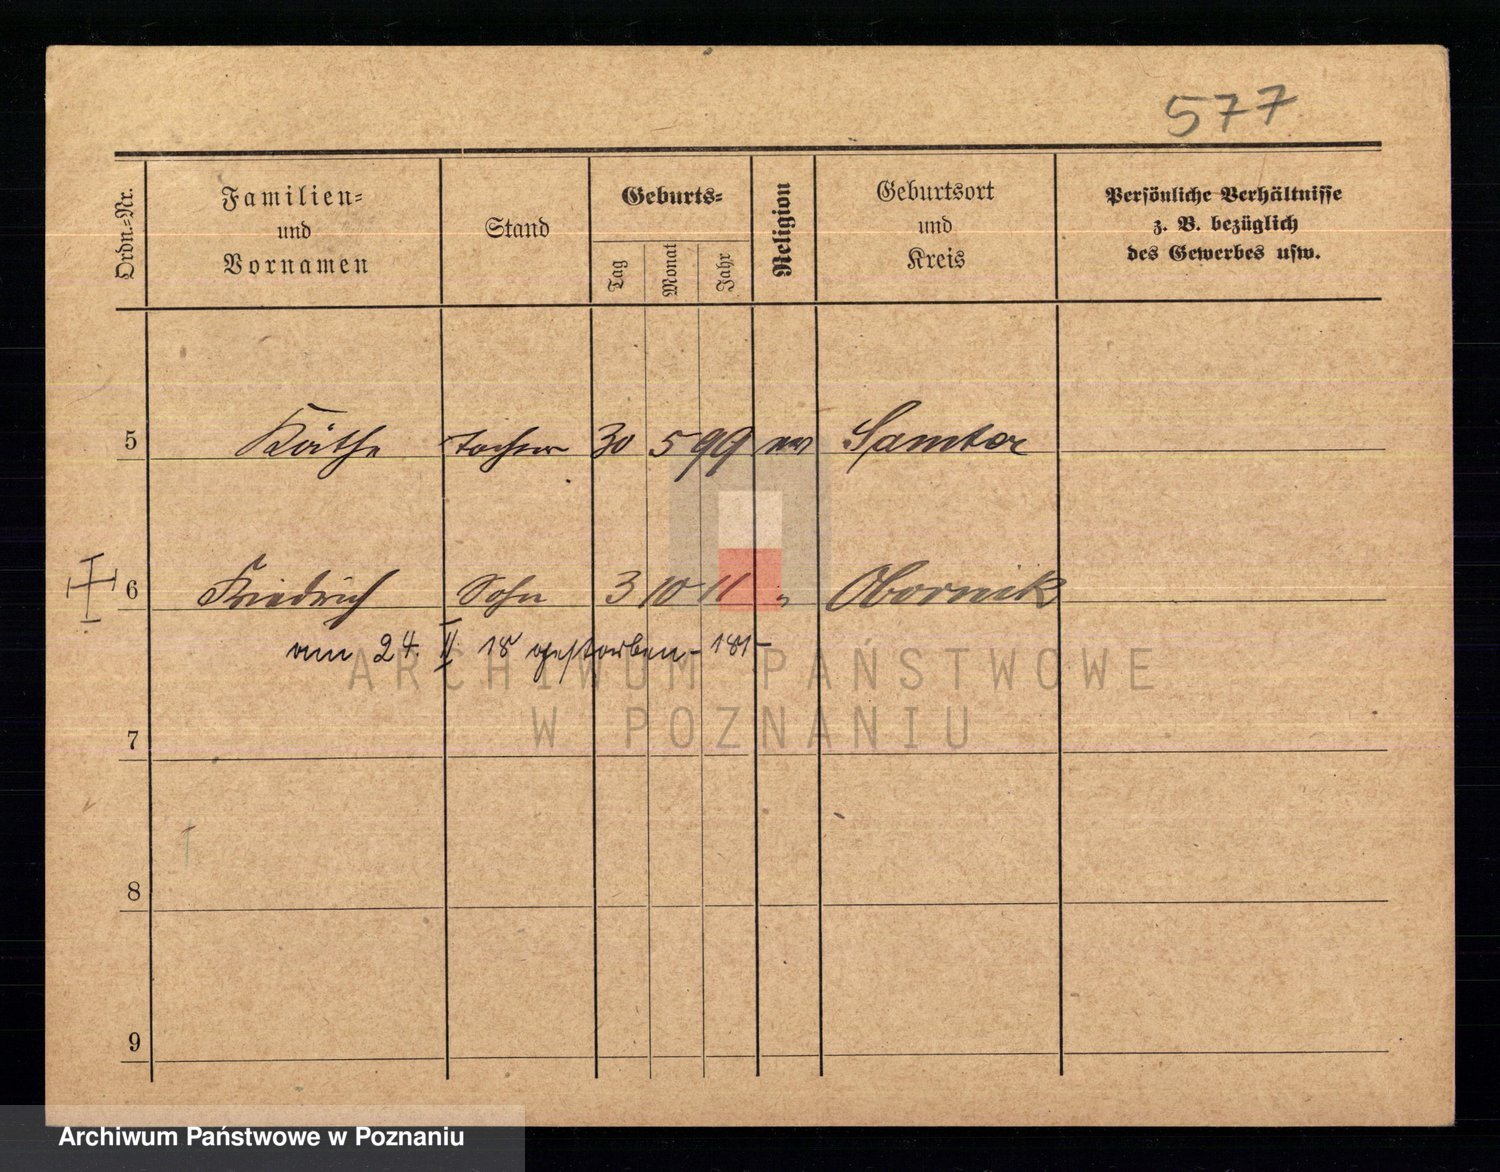 577
Ordn.-Nr.
Familien-
und
Vornamen
Stand
Geburts-
Tag
Monat
Jahr
Religion
Geburtsort
und
Kreis
Persönliche Verhältnisse
z. B. bezüglich
des Gewerbes usw.
5 Käthe Tochter 30 5 99 ev Samter
6 Friedrich Sohn 3 10 11 " Obornik
am 24. II 18 gestorben - 181 -
ARCHIWUM PAŃSTWOWE
W POZNANIU
7
8
9
Archiwum Państwowe w Poznaniu